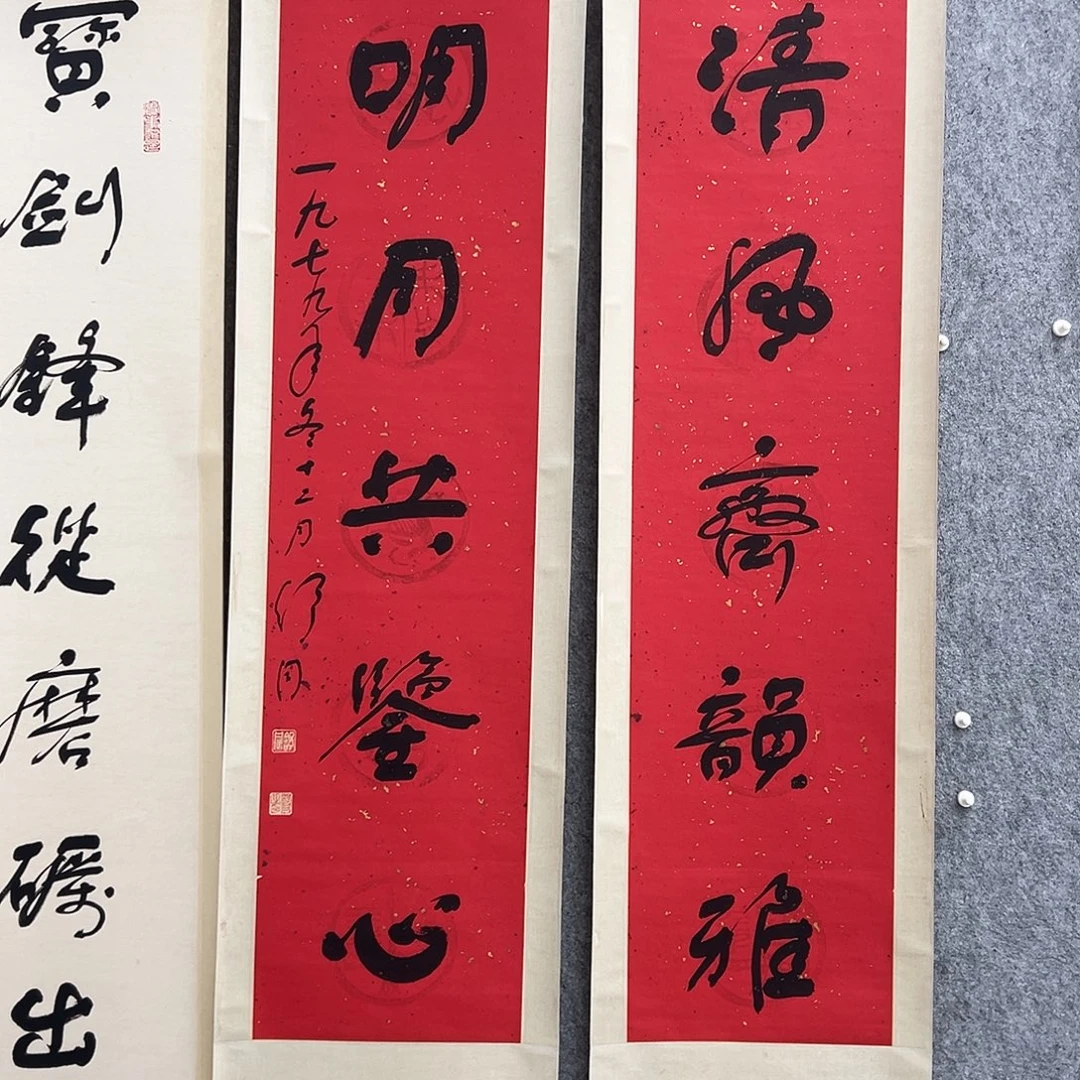 清風齊韻雅
明月共鑒心
一九七九年冬十二月 舒同
寶劍鋒從磨礪出